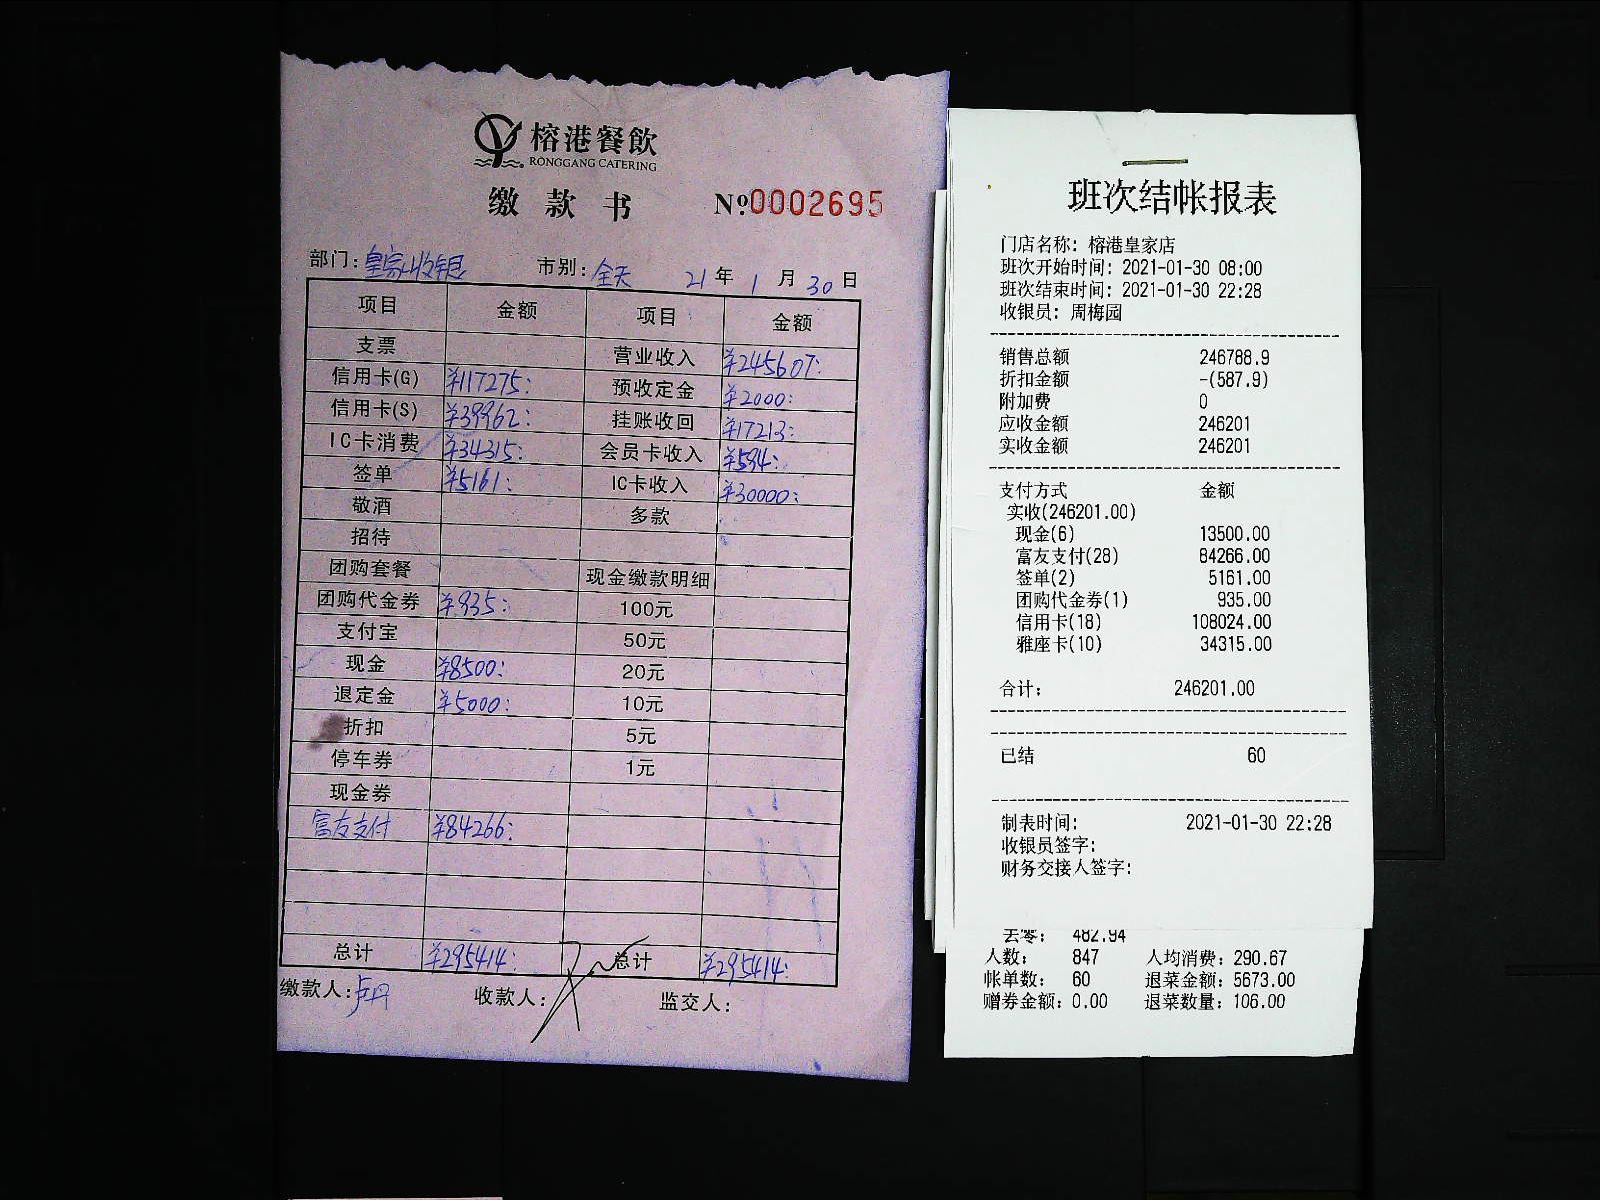 榕港餐飲
RONGGANG CATERING
缴款书 №0002695
部门:皇家收银 市别:全天 21年1月30日
项目 金额 项目 金额
支票 营业收入 ¥245607:
信用卡(G) ¥117275: 预收定金 ¥2000:
信用卡(S) ¥39962: 挂账收回 ¥17213:
IC卡消费 ¥34315: 会员卡收入 ¥594:
签单 ¥5161: IC卡收入 ¥30000:
敬酒 多款
招待
团购套餐 现金缴款明细
团购代金券 ¥935: 100元
支付宝 50元
现金 ¥8500: 20元
退定金 ¥5000: 10元
折扣 5元
停车券 1元
现金券
富友支付 ¥84266:
总计 ¥295414: 总计 ¥295414:
缴款人:卢丹 收款人: 监交人:
班次结帐报表
门店名称: 榕港皇家店
班次开始时间: 2021-01-30 08:00
班次结束时间: 2021-01-30 22:28
收银员: 周梅园
销售总额 246788.9
折扣金额 -(587.9)
附加费 0
应收金额 246201
实收金额 246201
支付方式 金额
实收(246201.00)
现金(6) 13500.00
富友支付(28) 84266.00
签单(2) 5161.00
团购代金券(1) 935.00
信用卡(18) 108024.00
雅座卡(10) 34315.00
合计: 246201.00
已结 60
制表时间: 2021-01-30 22:28
收银员签字:
财务交接人签字:
去零: 482.94
人数: 847 人均消费: 290.67
帐单数: 60 退菜金额: 5673.00
赠券金额: 0.00 退菜数量: 106.00